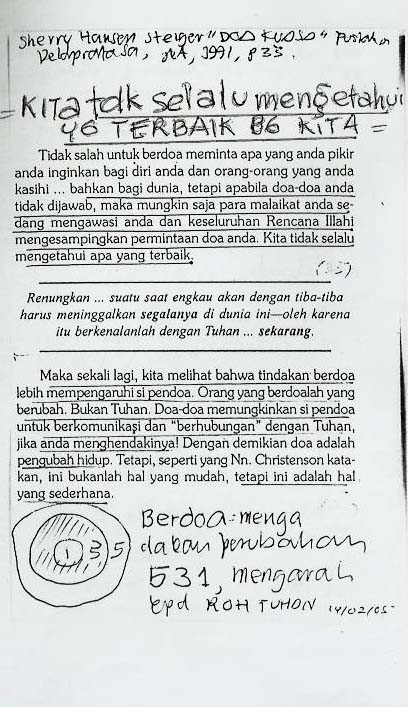 Sherry Hansen Steiger "DOA KUASA" Pustaka
Delapratasa, 1991, p 35.
= KITA tdk selalu mengetahui
yg TERBAIK BG KITA =
Tidak salah untuk berdoa meminta apa yang anda pikir
anda inginkan bagi diri anda dan orang-orang yang anda
kasihi ... bahkan bagi dunia, tetapi apabila doa-doa anda
tidak dijawab, maka mungkin saja para malaikat anda se-
dang mengawasi anda dan keseluruhan Rencana Illahi
mengesampingkan permintaan doa anda. Kita tidak selalu
mengetahui apa yang terbaik.
(35)
Renungkan ... suatu saat engkau akan dengan tiba-tiba
harus meninggalkan segalanya di dunia ini—oleh karena
itu berkenalanlah dengan Tuhan ... sekarang.
Maka sekali lagi, kita melihat bahwa tindakan berdoa
lebih mempengaruhi si pendoa. Orang yang berdoalah yang
berubah. Bukan Tuhan. Doa-doa memungkinkan si pendoa
untuk berkomunikasi dan "berhubungan" dengan Tuhan,
jika anda menghendakinya! Dengan demikian doa adalah
pengubah hidup. Tetapi, seperti yang Nn. Christenson kata-
kan, ini bukanlah hal yang mudah, tetapi ini adalah hal
yang sederhana.
1 3 5
Berdoa = menga
dakan perubahan
531, mengarah
kpd ROH TUHAN 14/02/05